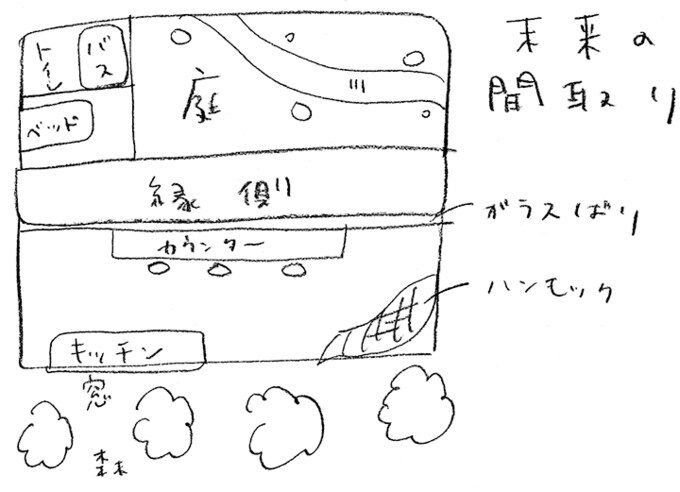 未来の
間取り
トイレ
バス
庭
ベッド
縁側
ガラスばり
カウンター
ハンモック
キッチン
窓
森